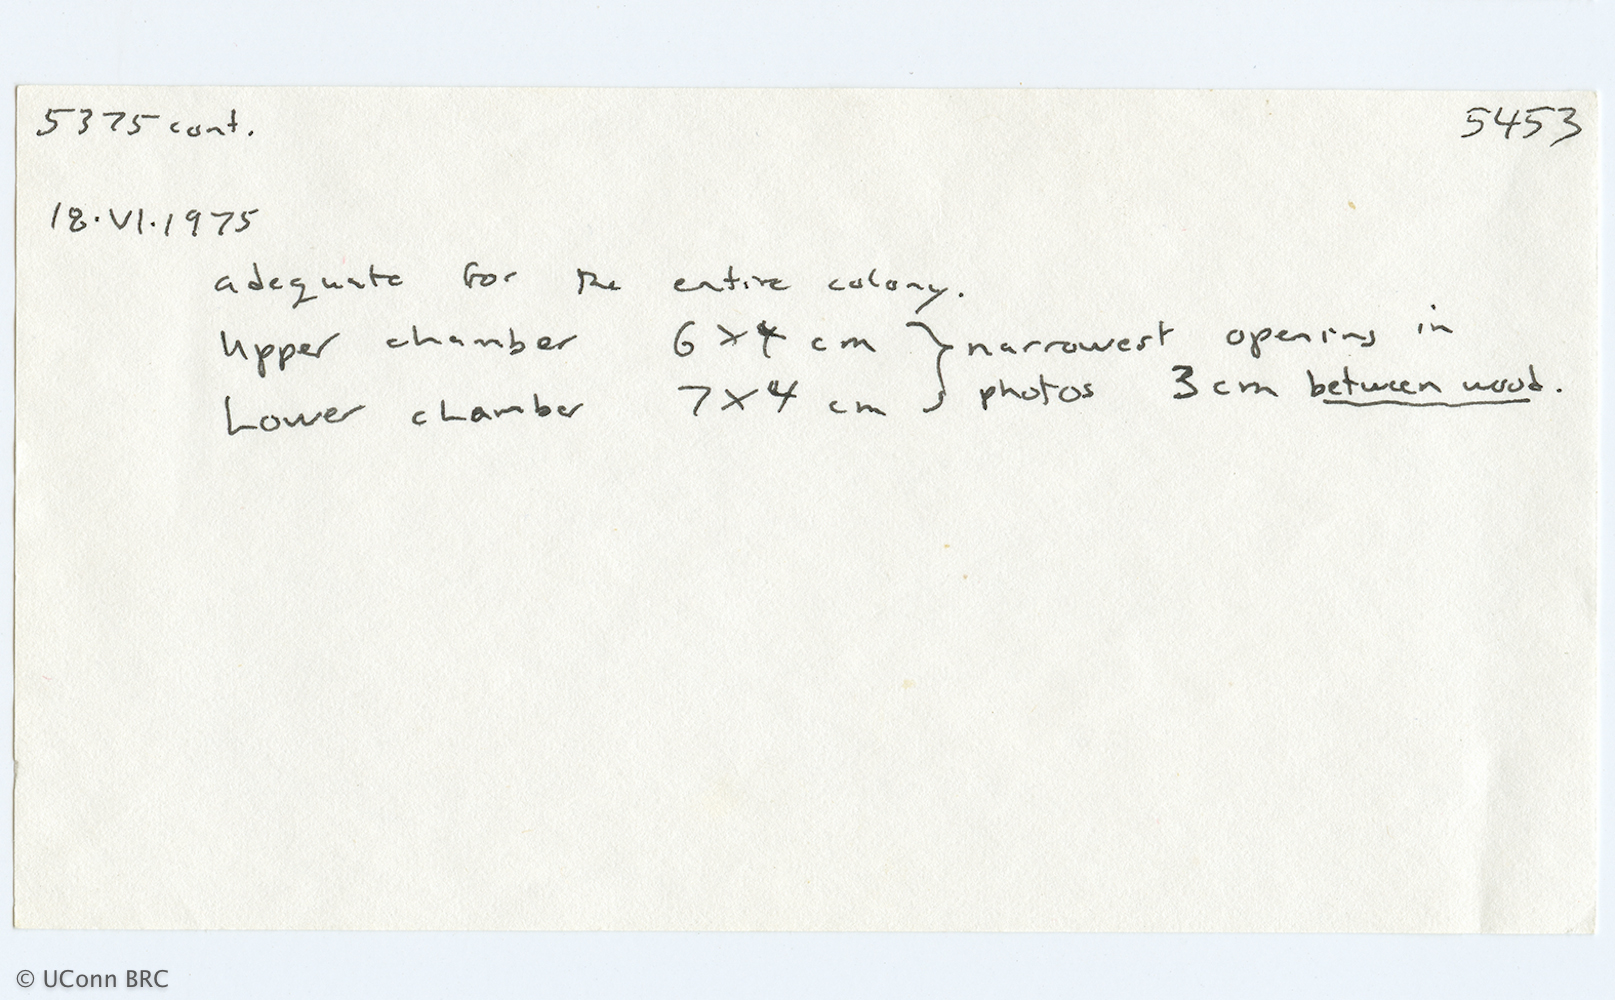 5375 cont. 5453
18.VI.1975
adequate for the entire colony.
Upper chamber 6 x 4 cm } narrowest opening in
Lower chamber 7 x 4 cm } photos 3 cm between wood.
© UConn BRC